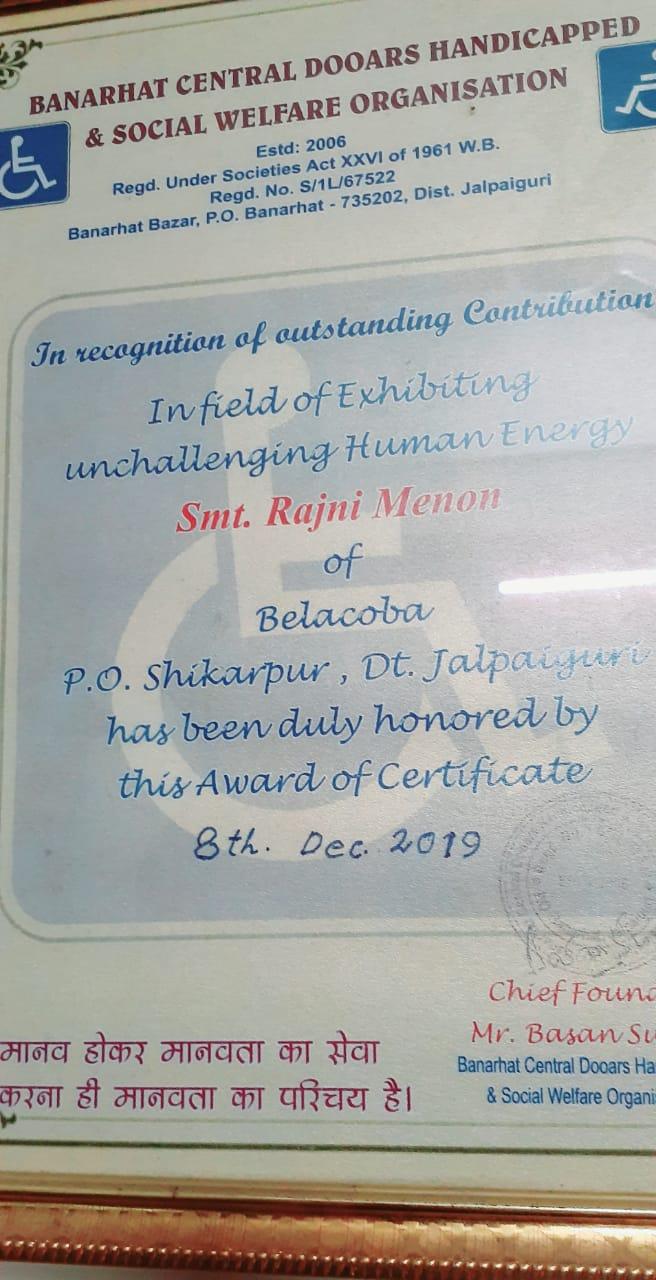 BANARHAT CENTRAL DOOARS HANDICAPPED
& SOCIAL WELFARE ORGANISATION
Estd: 2006
Regd. Under Societies Act XXVI of 1961 W.B.
Regd. No. S/1L/67522
Banarhat Bazar, P.O. Banarhat - 735202, Dist. Jalpaiguri
In recognition of outstanding Contribution
In field of Exhibiting
unchallenging Human Energy
Smt. Rajni Menon
of
Belacoba
P.O. Shikarpur, Dt. Jalpaiguri
has been duly honored by
this Award of Certificate
8th. Dec. 2019
Chief Found
Mr. Basan Su
Banarhat Central Dooars Ha
& Social Welfare Organi
मानव होकर मानवता का सेवा
करना ही मानवता का परिचय है।